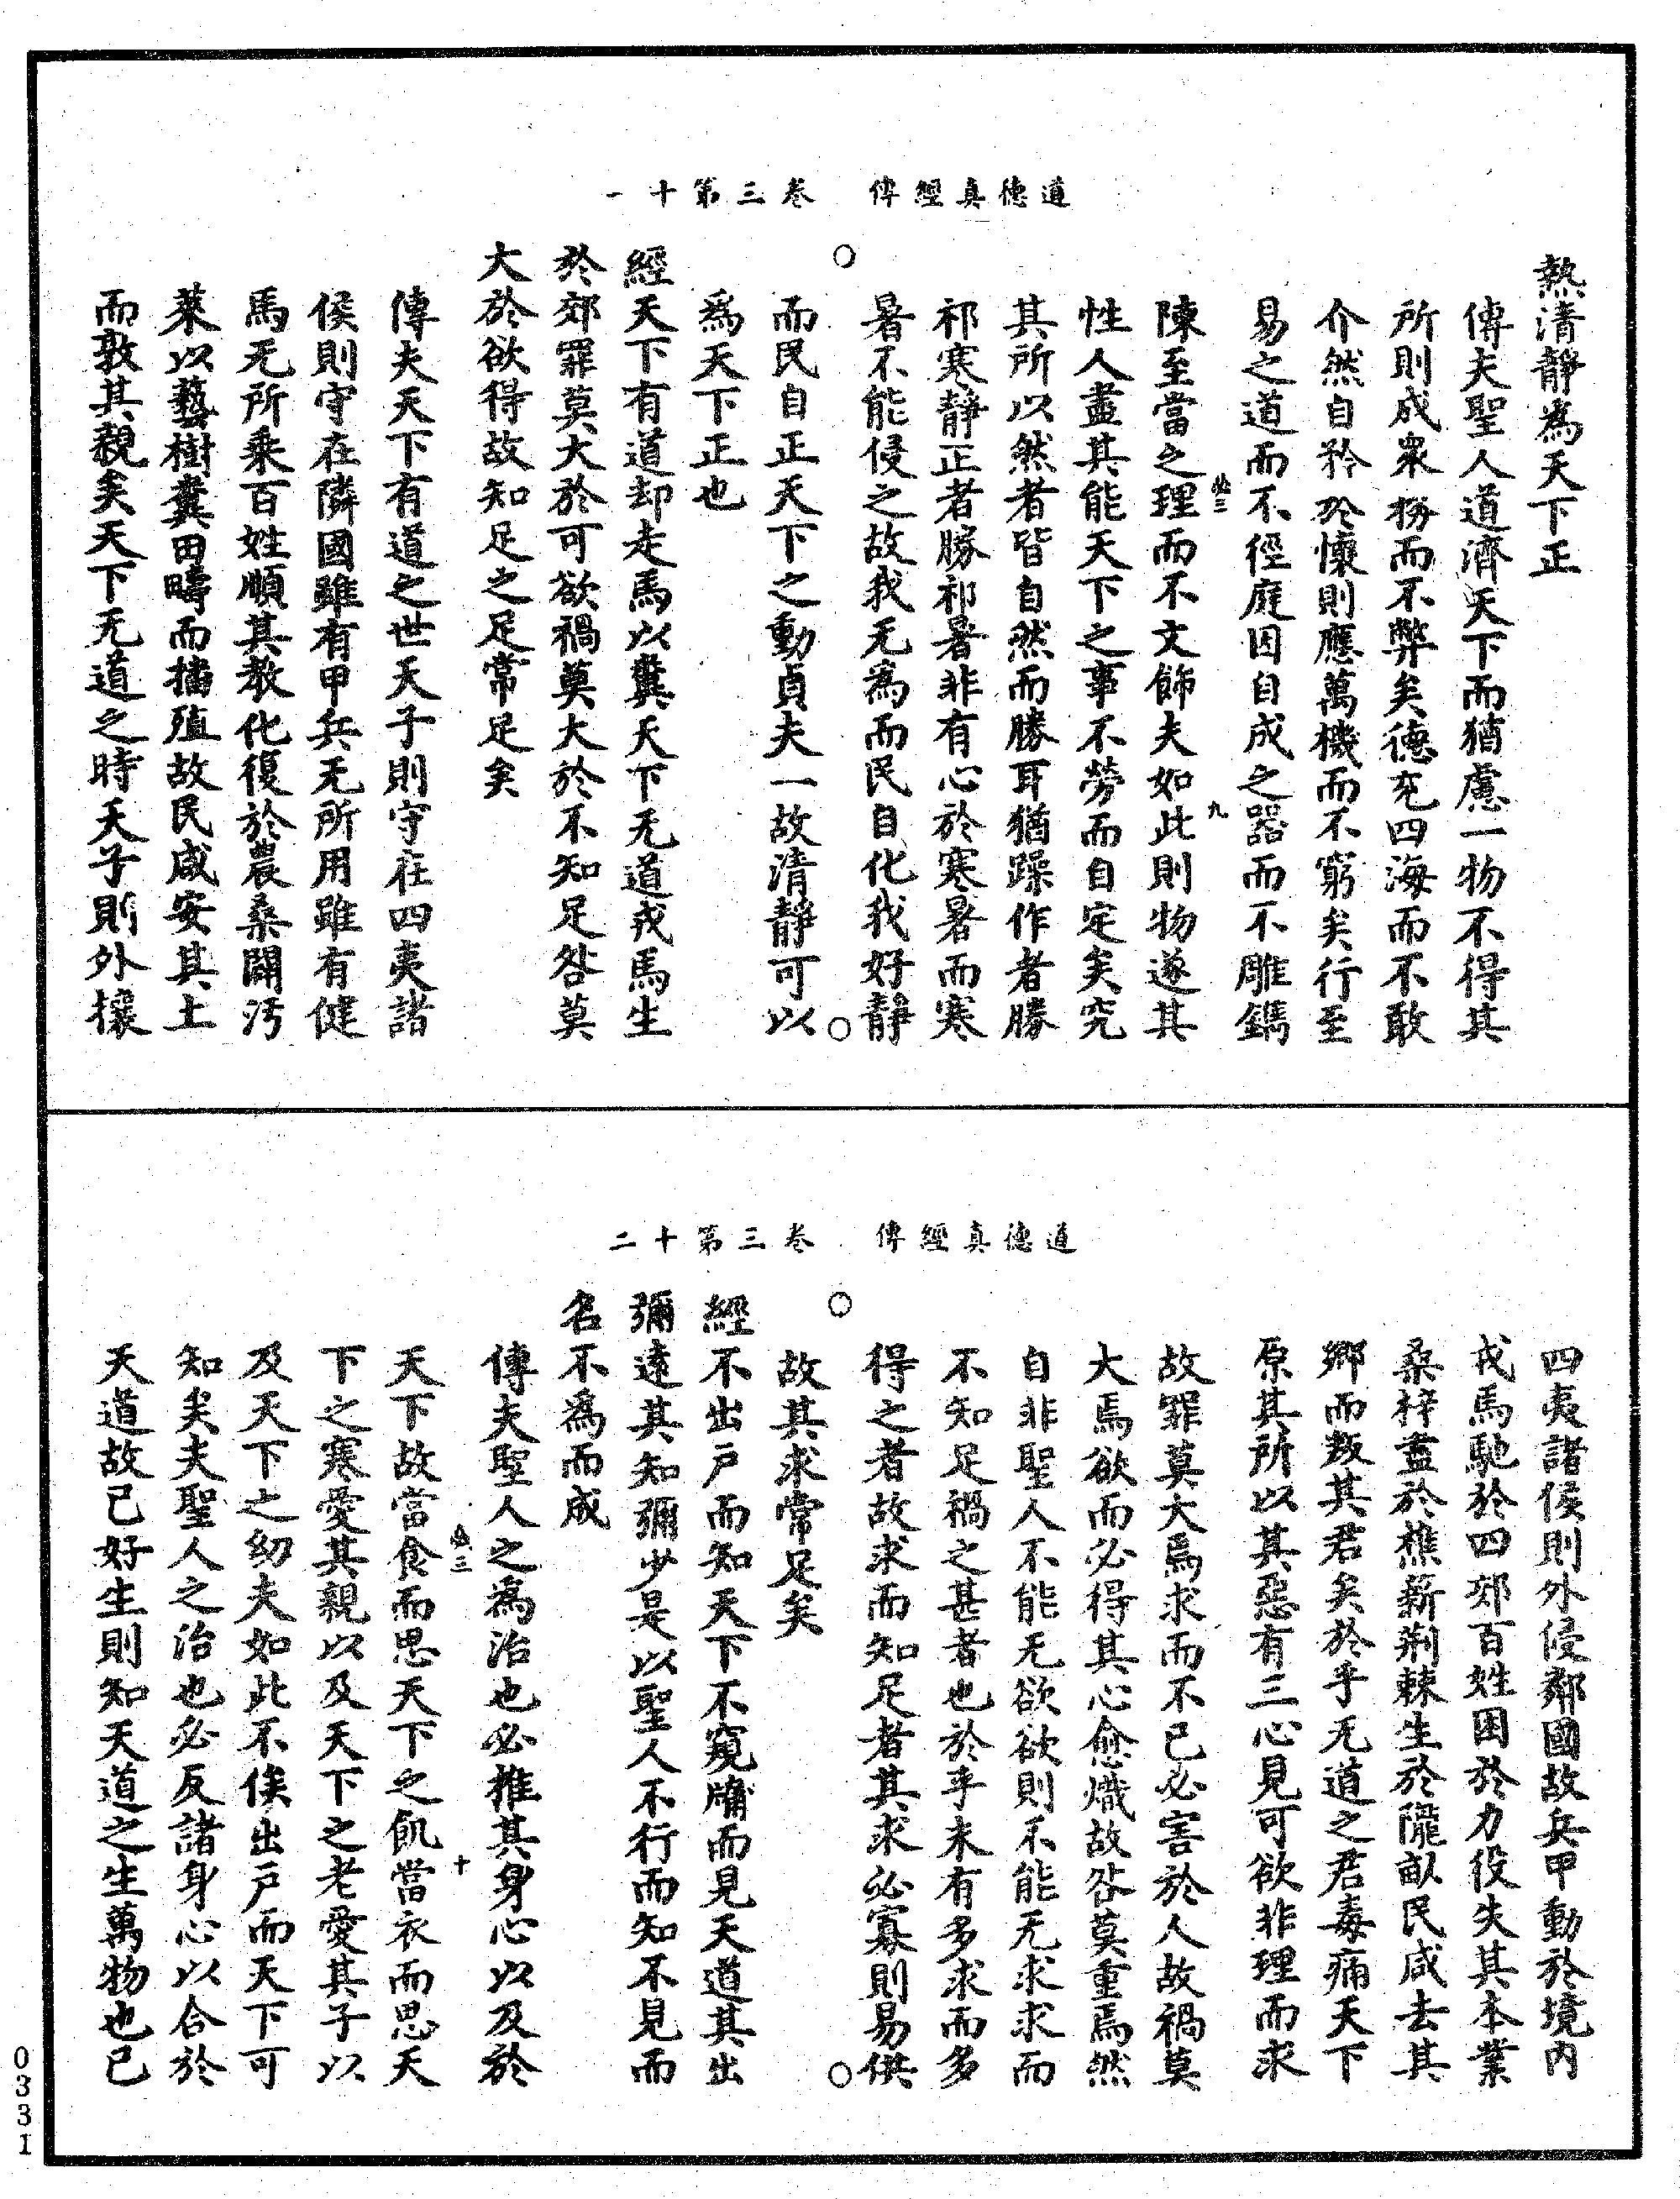 道德真經傳　卷三第十一
熱清靜爲天下正
傳夫聖人道濟天下而猶慮一物不得其
所則成衆務而不弊矣德充四海而不敢
介然自矜於懷則應萬機而不窮矣行至
易之道而不徑庭因自成之器而不雕鐫
必三　九
陳至當之理而不文飾夫如此則物遂其
性人盡其能天下之事不勞而自定矣究
其所以然者皆自然而勝耳猶躁作者勝
祁寒靜正者勝祁暑非有心於寒暑而寒
暑不能侵之故我无爲而民自化我好靜
而民自正天下之動貞夫一故清靜可以
爲天下正也
經天下有道却走馬以糞天下无道戎馬生
於郊罪莫大於可欲禍莫大於不知足咎莫
大於欲得故知足之足常足矣
傳夫天下有道之世天子則守在四夷諸
侯則守在隣國雖有甲兵无所用雖有健
馬无所乘百姓順其教化復於農桑闢汚
萊以藝樹糞田疇而播殖故民咸安其土
而敦其親矣天下无道之時天子則外攘
道德真經傳　卷三第十二
四夷諸侯則外侵鄰國故兵甲動於境內
戎馬馳於四郊百姓困於力役失其本業
桑梓盡於樵薪荆棘生於隴畝民咸去其
鄉而叛其君矣於乎无道之君毒痡天下
原其所以其惡有三心見可欲非理而求
故罪莫大焉求而不已必害於人故禍莫
大焉欲而必得其心愈熾故咎莫重焉然
自非聖人不能无欲欲則不能无求求而
不知足禍之甚者也於乎未有多求而多
得之者故求而知足者其求必寡則易供
故其求常足矣
經不出戶而知天下不窺牖而見天道其出
彌遠其知彌少是以聖人不行而知不見而
名不爲而成
傳夫聖人之爲治也必推其身心以及於
必三　十
天下故當食而思天下之飢當衣而思天
下之寒愛其親以及天下之老愛其子以
及天下之幼夫如此不俟出戶而天下可
知矣夫聖人之治也必反諸身心以合於
天道故已好生則知天道之生萬物也已
0331